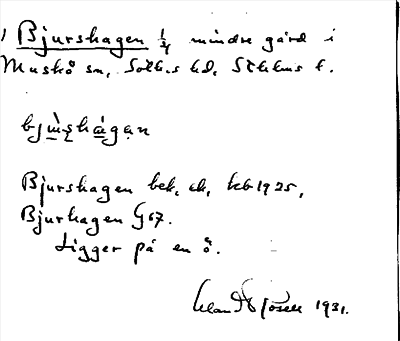 1 Bjurshagen 1/4 mindre gård i
Muskö sn, Soth.s hd, Sthlms l.
Bjurshagen bek, ek, kb 1925,
Bjurhagen G 67.
Ligger på en ö.
1931.